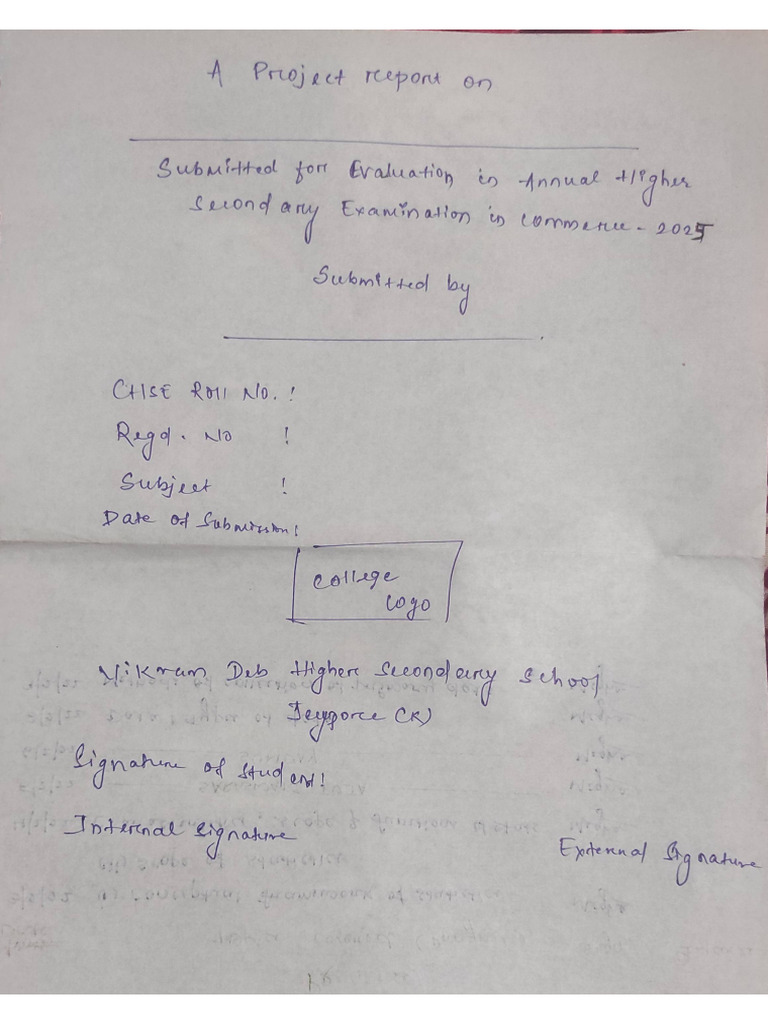 A Project report on
Submitted for Evaluation in Annual Higher
Secondary Examination in Commerce - 2025
Submitted by
CHSE Roll No. :
Regd. No :
Subject :
Date of Submission :
College
Logo
Vikram Deb Higher Secondary School
Jeypore (K)
Signature of Student :
Internal Signature
External Signature